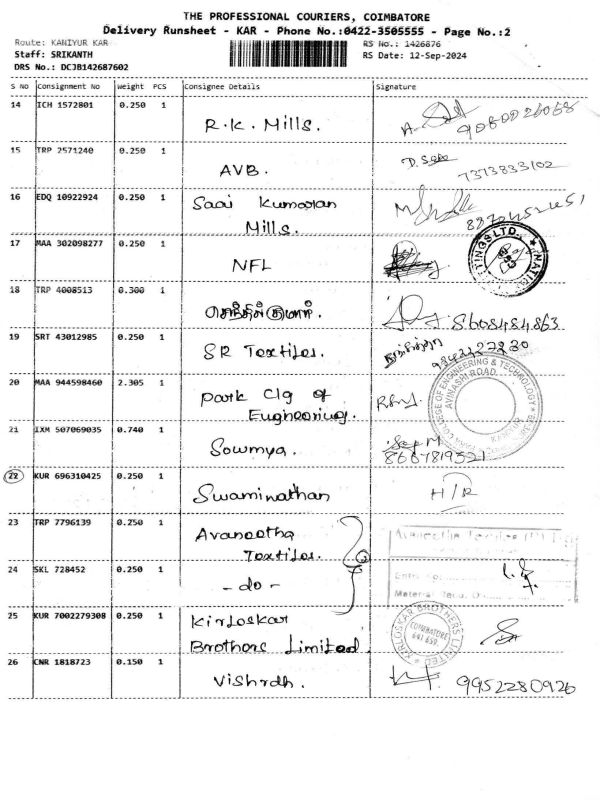 THE PROFESSIONAL COURIERS, COIMBATORE
Delivery Runsheet - KAR - Phone No.:0422-3505555 - Page No.:2
Route: KANIYUR KAR
RS No.: 1426876
Staff: SRIKANTH
RS Date: 12-Sep-2024
DRS No.: DCJB142687602
S No Consignment No Weight PCS Consignee Details Signature
14 ICH 1572801 0.250 1 R.K. Mills. 9080026068
15 TRP 2571240 0.250 1 AVB. 7373833102
16 EDQ 10922924 0.250 1 Saai Kumaran
Mills.
17 MAA 302098277 0.250 1 NFL
18 TRP 4008513 0.300 1 செந்தில்குமார். 8608484863
19 SRT 43012985 0.250 1 SR Textiles.
20 MAA 944598460 2.305 1 Park Clg of
Engineering.
COLLEGE OF ENGINEERING & TECHNOLOGY
AVINASHI ROAD
21 IXM 507069035 0.740 1 Sowmya.
8667819521
22 KUR 696310425 0.250 1 Swaminathan H/R
23 TRP 7796139 0.250 1 Avaneetha
Textiles.
24 SKL 728452 0.250 1 - do -
25 KUR 7002279308 0.250 1 Kirloskar
Brothers Limited.
KIRLOSKAR BROTHERS LIMITED
COIMBATORE
641 659.
26 CNR 1818723 0.150 1 Vishrdh. 9952280926